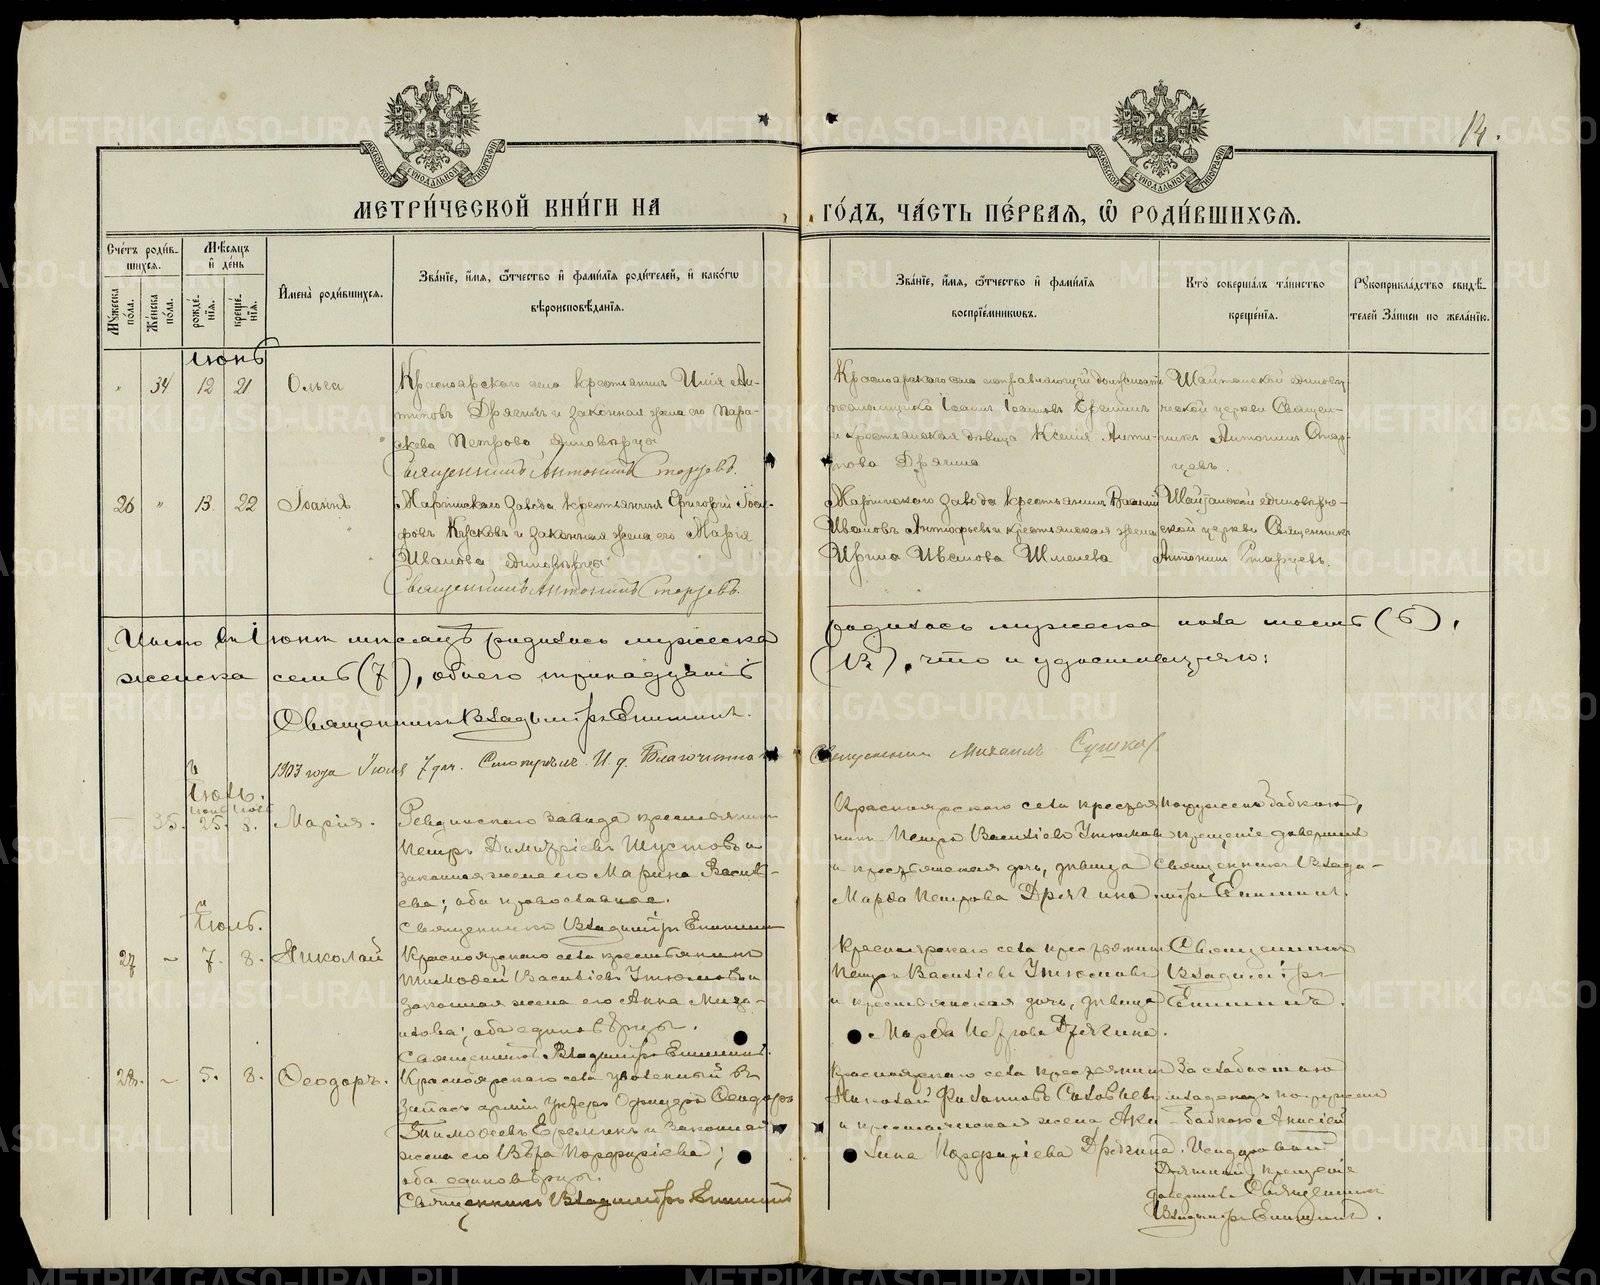 14.
МОСКОВСКОЙ СѴНОДАЛЬНОЙ ТИПОГРАФІИ
МОСКОВСКОЙ СѴНОДАЛЬНОЙ ТИПОГРАФІИ
МЕТРИ́ЧЕСКОЙ КНИ́ГИ НА
ГО́ДЪ, ЧА́СТЬ ПЕ́РВАѦ, Ѽ РОДИ́ВШИХСѦ.
Сче́тъ роди́в-
шихсѧ.
Мꙋ́жеска по́ла.
Же́нска по́ла.
Мѣ́сѧцъ
и҆ де́нь
рожде́-
нїѧ.
креще́-
нїѧ.
И҆мена̀ роди́вшихсѧ.
Зва́нїе, и҆́мѧ, ѻ҆́тчество и҆ фами́лїѧ роди́телей, и҆ како́гѡ
вѣроисповѣ́данїѧ.
Зва́нїе, и҆́мѧ, ѻ҆́тчество и҆ фами́лїѧ
воспрїе́мникѡвъ.
Кто̀ соверша́лъ та́инство
креще́нїѧ.
Рꙋкоприкла́дство свидѣ́-
телей За́писи по жела́нїю.
Іюнь
34 12 21 Ольга
Красноярскаго села крестьянинъ Илія Ан-
типовъ Дрягинъ и законная жена его Пара-
скева Петрова единовѣрцы
Священникъ Антоній Старцевъ.
Красноярскаго села исправляющій должность
псаломщика Іоаннъ Іоанновъ Еремин
и крестьянская дѣвица Ксенія Анти-
пова Дрягина
Шайтанской единовѣр-
ческой церкви Священ-
никъ Антоній Стар-
цевъ.
26 " 13 22 Іоаннъ
Маріинскаго завода крестьянинъ Григорій Іоси-
фовъ Кусковъ и законная жена его Марія
Иванова единовѣрцы
Священникъ Антоній Старцевъ.
Маріинскаго завода крестьянинъ Василій
Ивановъ и крестьянская жена
Ирина Иванова Шмелева
Шайтанской единовѣрче-
ской церкви Священникъ
Антоній Старцевъ.
Итого въ Іюнѣ мѣсяцѣ родилось мужеска
родилось мужеска пола шесть (6),
женска семь (7), обоего тринадцать
(13), что и удостовѣряю:
Священникъ Владиміръ Епишинъ.
1903 года Іюля 7 дня. Смотрѣлъ И. д. Благочиннаго
Священникъ Михаилъ Сушков
Іюль.
35. 25. 8. Марія.
Ревдинскаго завода крестьянинъ
Петръ Димитріевъ Шустовъ и
законная жена его Марина Василь-
ева; оба православные.
Священникъ Владиміръ Епишинъ
Красноярскаго села крестья-
нинъ Петръ Васильевъ Утюмовъ
и крестьянская дочь, дѣвица
Марѳа Петрова Дрягина.
Погружена бабкою,
крещеніе довершилъ
Священникъ Влади-
міръ Епишинъ.
Іюль.
27 – 7. 8. Николай
Красноярскаго села крестьянинъ
Тимоѳей Васильевъ Утюмовъ и
законная жена его Анна Миха-
илова; оба единовѣрцы.
Священникъ Владиміръ Епишинъ.
Красноярскаго села крестьянинъ
Петръ Васильевъ Утюмовъ
и крестьянская дочь, дѣвица
Марѳа Петрова Дрягина.
Священникъ
Владиміръ
Епишинъ.
28. – 5. 8. Ѳеодоръ.
Красноярскаго села уволенный въ
запасъ арміи унтеръ офицеръ Ѳеодоръ
Тимоѳеевъ Ереминъ и законная
жена его Вѣра Порфиріева;
оба единовѣрцы.
Священникъ Владиміръ Епишинъ
Красноярскаго села крестьянинъ
Николай Филипповъ
и крестьянская жена Аку-
лина Порфиріева Дрягина.
За слабостію
младенецъ погруженъ
бабкою Анисіей
Дрягиной, крещеніе
довершилъ Священникъ
Владиміръ Епишинъ.
METRIKI.GASO-URAL.RU